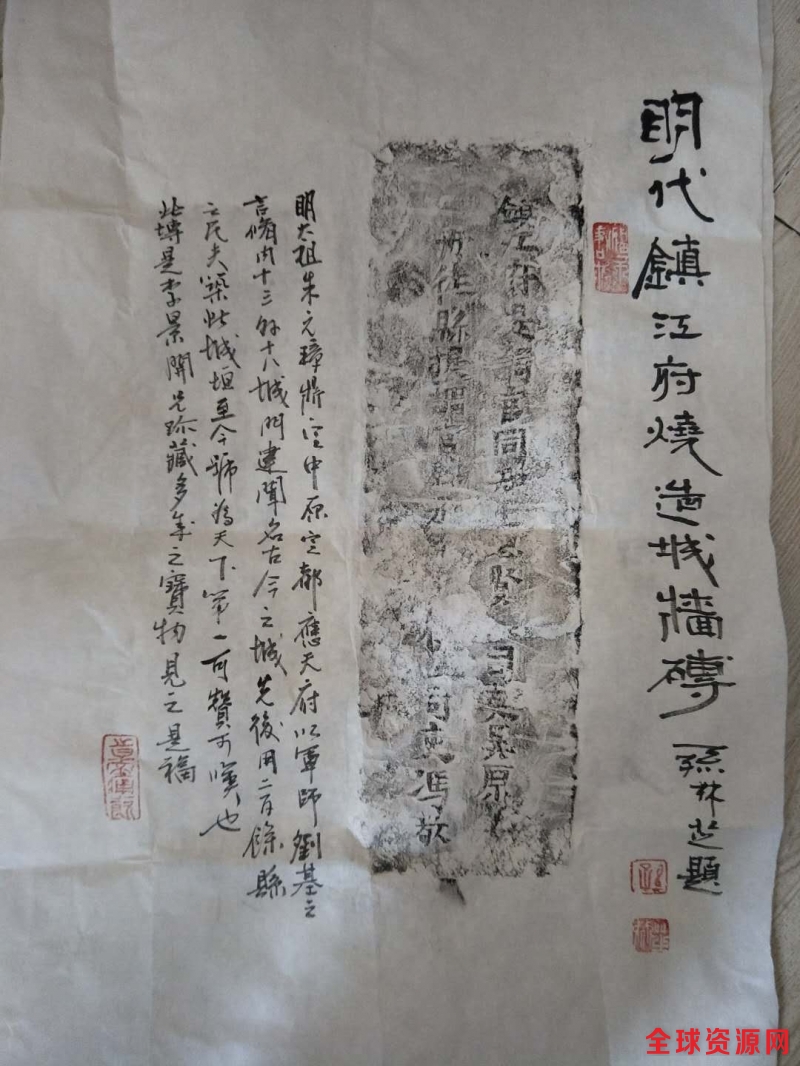 明代鎮江府燒造城牆磚 孫林芝題
鎮江府提調官同知 司吏吴原
丹徒縣提調官 司吏馮敬
明太祖朱元璋將定中原定都應天府以軍師劉基之
言脩內十三外十八城門建聞名古今之城先後用二百餘縣
之民夫築此城垣至今號為天下第一可贊可嘆也
此塼是李景開兄珍藏多年之寶物見之是福
全球资源网